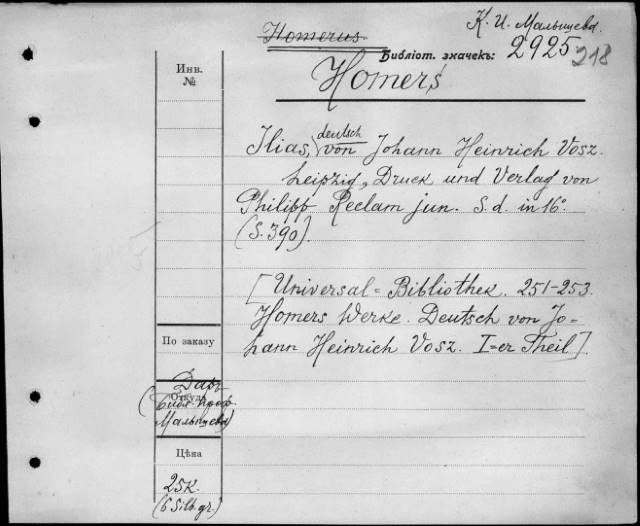 К. И. Малышева.
Homerus
Библіот. значекъ: 2925 218
Homers
Инв.
№
Ilias, deutsch von Johann Heinrich Vosz.
Leipzig, Druck und Verlag von
Philipp Reclam jun. S. d. in 16°.
(S. 390).
[Universal=Bibliothek. 251-253.
Homers Werke. Deutsch von Jo-
hann Heinrich Vosz. I=er Theil]
По заказу
Откуда
Даръ
(библ. проф.
Малышева)
Цѣна
25 к.
(6 Silbgr.)